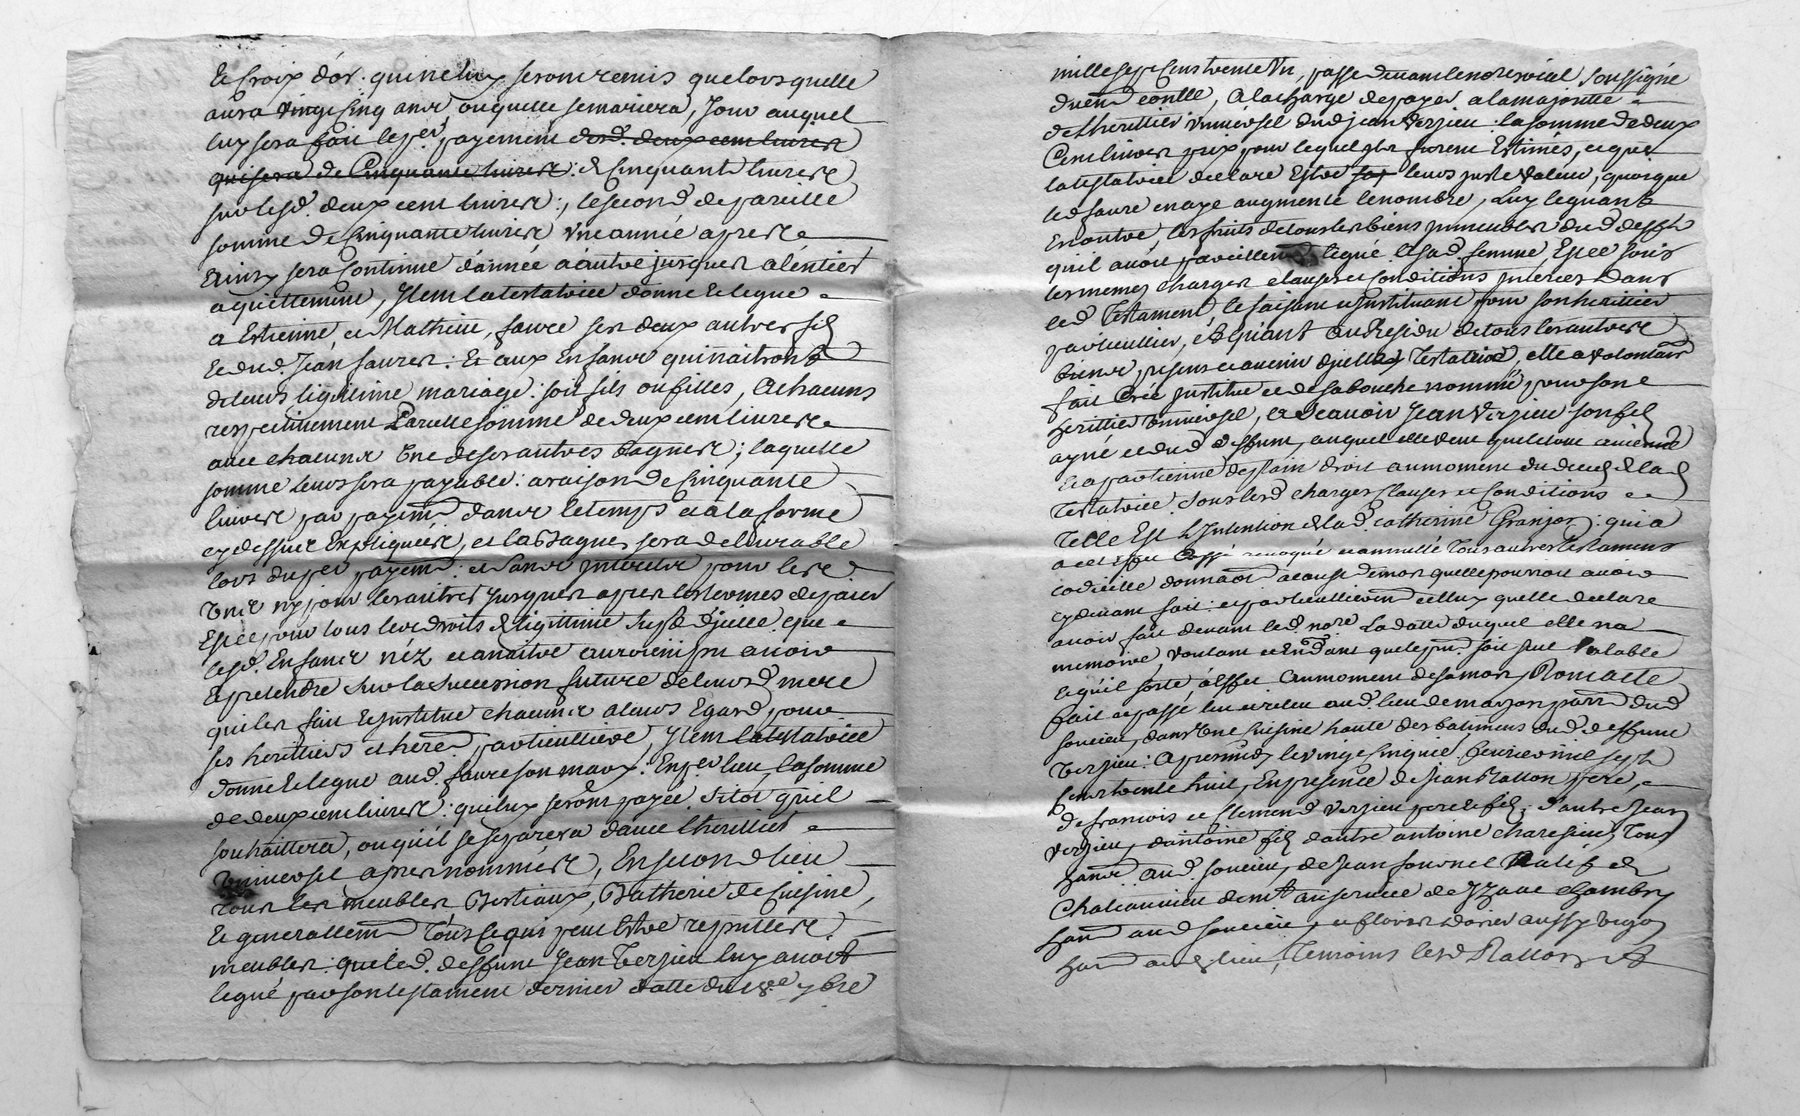 & Croix d'or. qui ne luy seront remis que lors quelle
aura vingt Cinq ans, ou quelle se mariera, Jour auquel
luy sera fait le p.er payement desd. deux cent livres
qui sera de Cinquante livres: de Cinquante livres
sur lesd. deux cent livres:, le second de pareille
somme de Cinquante livres une année apres &
ainsy sera Continué d'année a autre jusques a l'entier
aquittement, Item la testatrice donne & legue
a Estienne, et Mathieu, faure ses deux autres fils
& dud. Jean faure: & aux Enfans qui naitront
de leurs ligitime mariage: soit fils ou filles, A chacuns
respectivement Pareille somme de deux cent livres
avec chacune une de ses autres bagues; laquelle
somme leurs sera payable: a raison de Cinquante
livres par payem.t dans le temps et a la forme
cy dessus Expliquée, et la Bague, sera delivrable
lors du p.er payem.t: et sans interets pour les
uns ny pour les autres jusques apres les termes de paier
Et ce pour tous leurs droits de ligitime supl.t d'jcelle que
lesd. Enfans nez et a naitre auroient pu avoir
& pretendre sur la succession future de leurd. mere
qui les fait & institue chacuns a leurs Egard, pour
ses heritiers et hered. particulliere, Item la testatrice
donne & legue aud. faure son mary: En p.er lieu, la somme
de deux cent livres: qui luy seront payée sitot qu'il
souhaittera, ou qu'il se separera d'avec l'heritier
universel apres nommé, En second lieu
tous les meubles Bestiaux, Batherie de Cuisine,
& generallem.t Tous ce qui peut Estre reputter
meubles: que led. deffunt Jean Verzieu luy avoit
legué par son testament dernier datté du 18.e 7bre
mille sept Cens trente Un, passé devant le no.re royal, soussigné
duem.t contllé, A la charge de payer a la majorité
de l'herittier universel dud. jean Verzieu: la somme de deux
Cent livres prix pour lequel ils furent Estimés, et que
la testatrice declare Estre leurs juste valeur, quoique
led faure en aye augmenté le nombre, Luy leguant
En outre les fruits de tous les biens immeubles dud. deffunt
qu'il avoit pareillem.t legué. A sad. femme, Et ce sous
les memes charges clauses et Conditions inserées Dans
led. Testament, le faisant et instituant pour son heritier
particullier, Et Quant Au Residu de tous les autres
biens, presens et avenir d'jcelle Testatrice, elle a volontairem.t
fait Créé institué et de sa bouche nommé, pour son
herittier universel, & Scavoir Jean Verzieu son fils
ayné et dud. deffunt, auquel elle veut que le tout avienne
& apartienne de plain droit au moment du deced de lad.
testatrice. Sous lesd. charges Clauses et Conditions
Telle Est l'Intention de lad. catherine Granjon: qui a
a cet effet Cassé revoqué et annullé Tous autres testamens
codicille donnaõn a cause de mort quelle pourroit avoir
cy devant fait: et particullierem.t celluy quelle declare
avoir fait devant led. no.re La datte duquel elle na
memoire, voulant et Endant que le pnt. soit seul Valable
& qu'il sorte, a Effet au moment de sa mort, Dont acte
fait et passé leu et releu aud. lieu de mayson parr. dud.
soucieu, dans Une Cuisine haute des batimens dud. deffunt
Verzieu: Apres midy le vingt cinquie. fevrier mil sept
Cens trente huit, En presence de Jean Rallon pere,
de francois et Clement Verzieu pere et fils, d'autre Jean
Verzieu, d'antoine fils d'autre antoine charesieu, Tous
hans. aud. soucieu, de Jean fournel Natif de
au service de Izaac chambry
han.t aud soucieu, et flories aussy
han.t aud. lieu, Temoins lesd Rallon